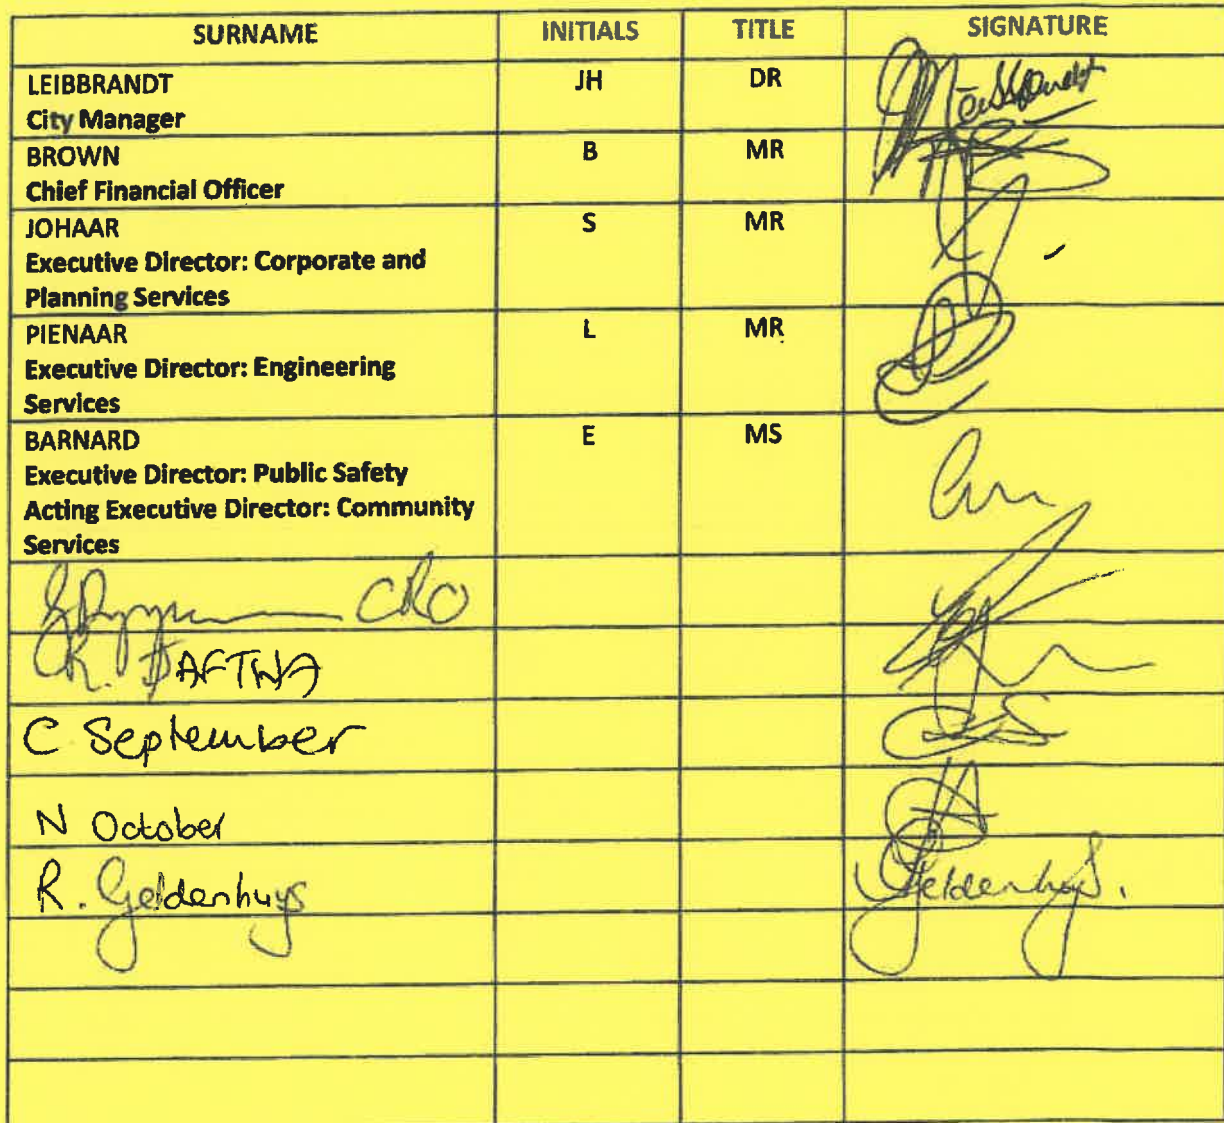 SURNAME INITIALS TITLE SIGNATURE
LEIBBRANDT JH DR
City Manager
BROWN B MR
Chief Financial Officer
JOHAAR S MR
Executive Director: Corporate and
Planning Services
PIENAAR L MR
Executive Director: Engineering
Services
BARNARD E MS
Executive Director: Public Safety
Acting Executive Director: Community
Services
CRO
C September
N October
R. Geldenhuys Geldenhuys.